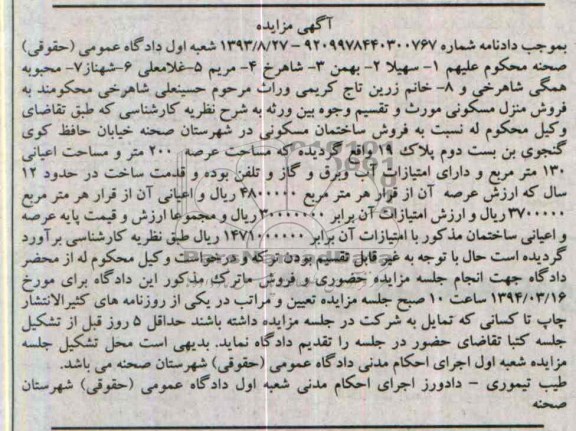 آگهی مزایده
بموجب دادنامه شماره ۹۲۰۹۹۷۸۴۴۰۳۰۰۷۶۷ – ۱۳۹۳/۸/۲۷ شعبه اول دادگاه عمومی (حقوقی)
صحنه محکوم علیهم ۱- سهیلا ۲- بهمن ۳- شاهرخ ۴- مریم ۵-غلامعلی ۶-شهناز۷- محبوبه
همگی شاهرخی و ۸- خانم زرین تاج کریمی وراث مرحوم حسینعلی شاهرخی محکومند به
فروش منزل مسکونی موروث و تقسیم وجوه بین ورثه به شرح نظریه کارشناسی که طبق تقاضای
وکیل محکوم له نسبت به فروش ساختمان مسکونی در شهرستان صحنه خیابان حافظ کوی
گنجوی بن بست دوم پلاک ۱۹ واقع گردیده که مساحت عرصه ۲۰۰ متر و مساحت اعیانی
۱۳۰ متر مربع و دارای امتیازات آب وبرق و گاز و تلفن بوده و قدمت ساخت در حدود ۱۲
سال که ارزش عرصه آن از قرار هر متر مربع ۴۸۰۰۰۰۰ ریال و اعیانی آن از قرار هر متر مربع
۳۷۰۰۰۰۰ ریال و ارزش امتیازات آن برابر ۳۰۰۰۰۰۰۰ ریال و مجموعا ارزش و قیمت پایه عرصه
و اعیانی ساختمان مذکور با امتیازات آن برابر ۱۴۷۱۰۰۰۰۰۰ ریال طبق نظریه کارشناسی برآورد
گردیده است حال با توجه به غیر قابل تقسیم بودن ترکه و درخواست وکیل محکوم له از محضر
دادگاه جهت انجام جلسه مزایده حضوری و فروش ماترک مذکور این دادگاه برای مورخ
۱۳۹۴/۰۳/۱۶ ساعت ۱۰ صبح جلسه مزایده تعیین و مراتب در یکی از روزنامه های کثیرالانتشار
چاپ تا کسانی که تمایل به شرکت در جلسه مزایده داشته باشند حداقل ۵ روز قبل از تشکیل
جلسه کتبا تقاضای حضور در جلسه را تقدیم دادگاه نماید. بدیهی است محل تشکیل جلسه
مزایده شعبه اول اجرای احکام مدنی دادگاه عمومی (حقوقی) شهرستان صحنه می باشد.
طیب تیموری – دادورز اجرای احکام مدنی شعبه اول دادگاه عمومی (حقوقی) شهرستان
صحنه